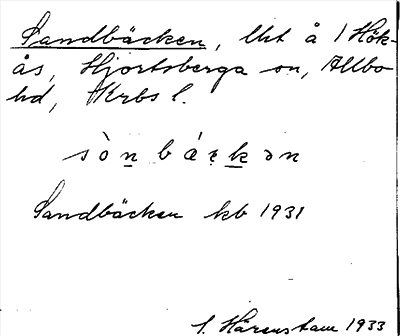 Sandbäcken, Uht å 1 Hök-
ås, Hjortsberga sn, Allbo
hd, Krbs l.
sò̱n bá̱ꝛ̱ḵən
Sandbäcken kb 1931
S. Härenstam 1933